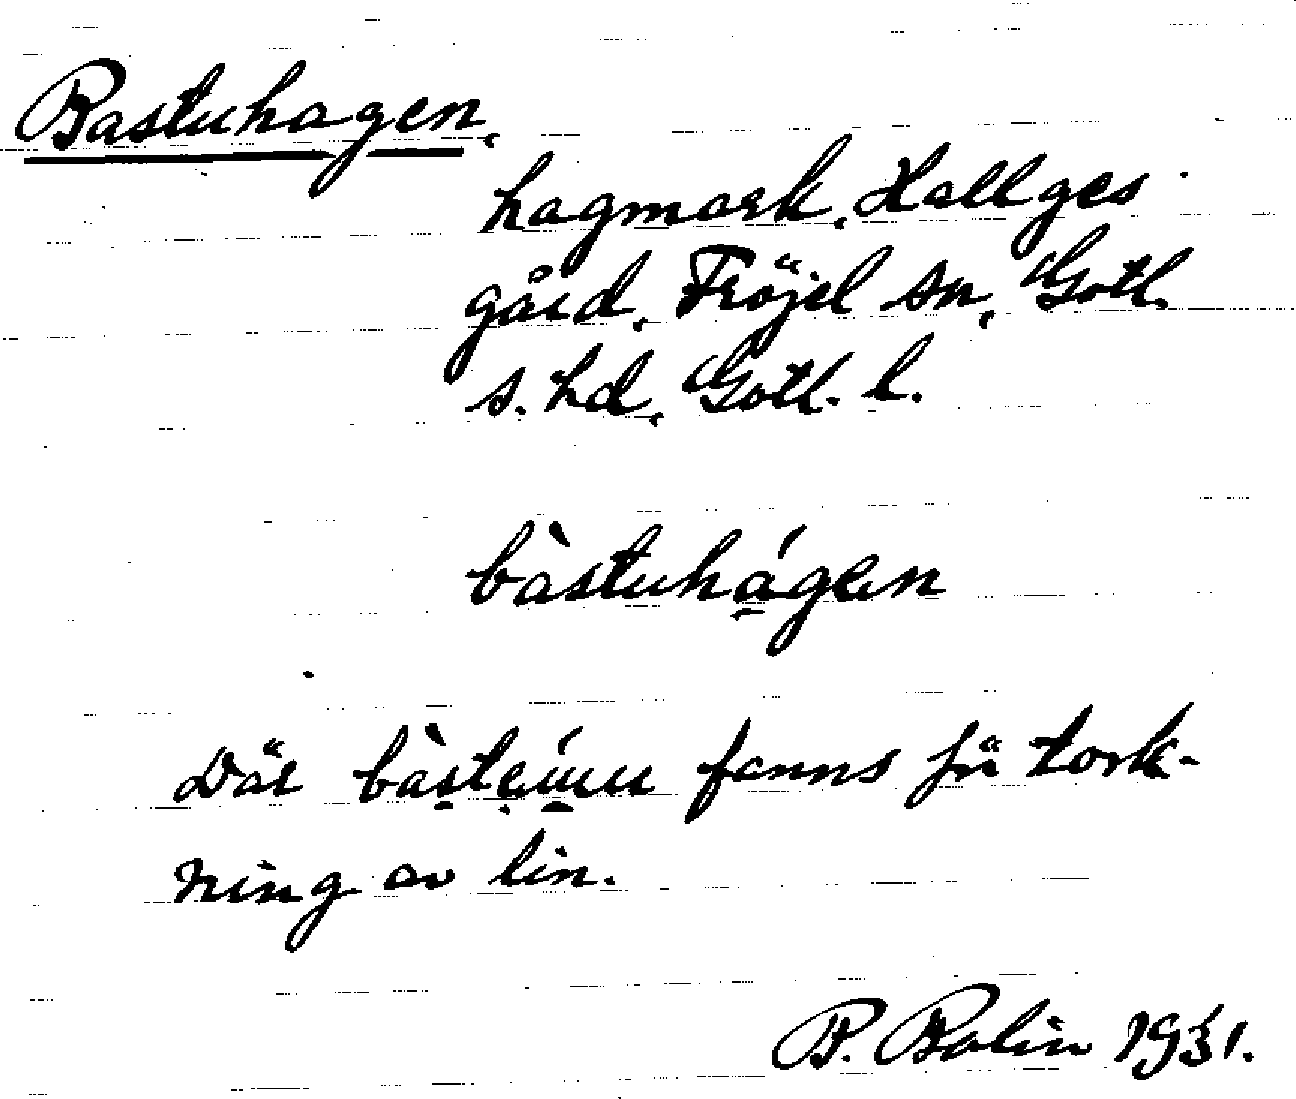 Bastuhagen,
hagmark, Hallges
gård, Fröjel sn, Gotl.
s. hd, Gotl. l.
bàstuhá̱gen
Där fanns för tork-
ning av lin.
B. Bolin 1931.